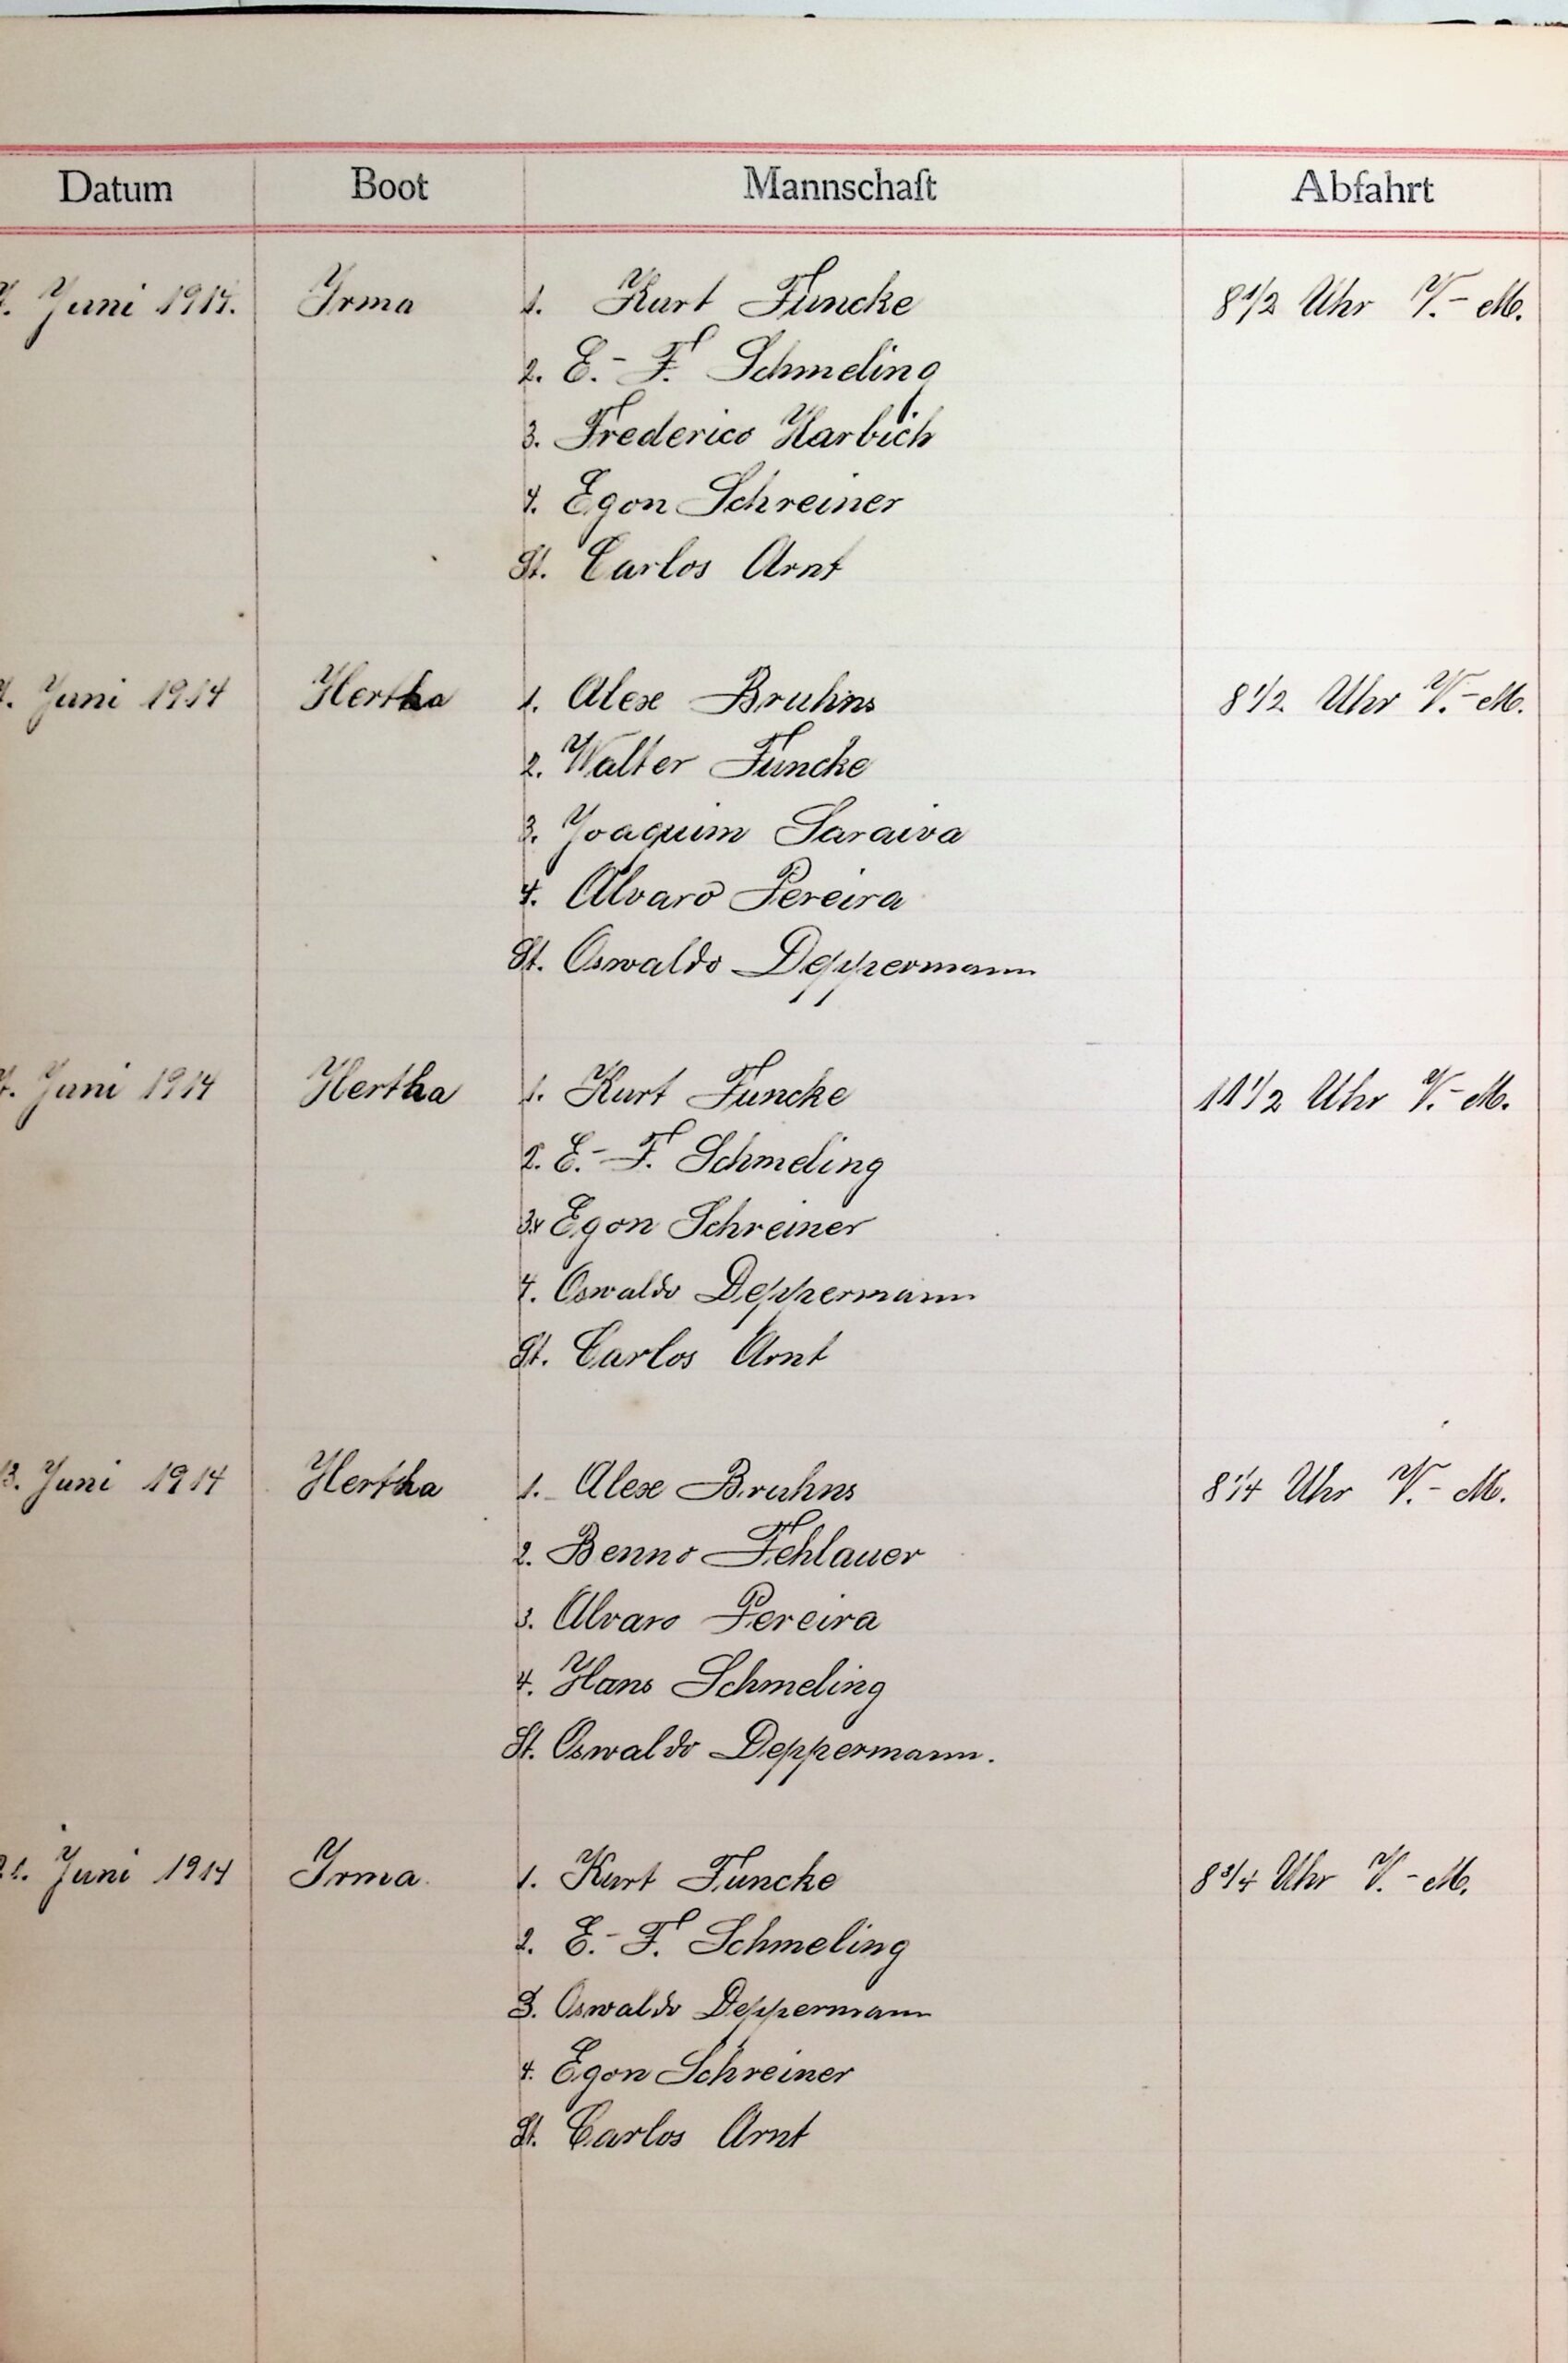 Datum Boot Mannschaft Abfahrt
7. Juni 1914. Irma 1. Kurt Funcke 8 1/2 Uhr V.-M.
2. E.-F. Schmeling
3. Frederico Harbich
4. Egon Schreiner
St. Carlos Arnt
7. Juni 1914 Hertha 1. Alex Bruhns 8 1/2 Uhr V.-M.
2. Walter Funcke
3. Joaquim Saraiva
4. Alvaro Pereira
St. Oswaldo Deppermann
7. Juni 1914 Hertha 1. Kurt Funcke 11 1/2 Uhr V.-M.
2. E.-F. Schmeling
3. Egon Schreiner
4. Oswaldo Deppermann
St. Carlos Arnt
13. Juni 1914 Hertha 1. Alex Bruhns 8 1/4 Uhr V.-M.
2. Benno Fehlauer
3. Alvaro Pereira
4. Hans Schmeling
St. Oswaldo Deppermann.
21. Juni 1914 Irma 1. Kurt Funcke 8 3/4 Uhr V.-M.
2. E.-F. Schmeling
3. Oswaldo Deppermann
4. Egon Schreiner
St. Carlos Arnt